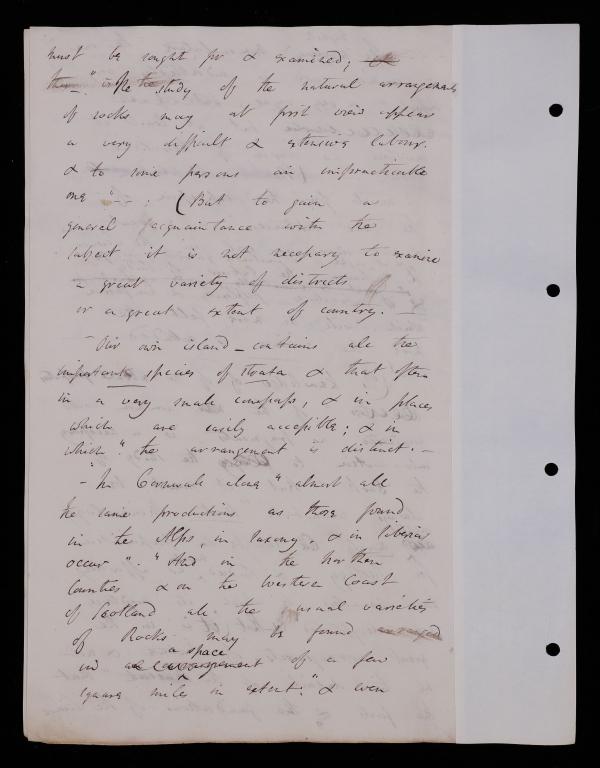 must be sought for & examined; &
then — " is the The study of the natural arrangements
of rocks may at first view appear
a very difficult & extensive labour.
& to some persons an impracticable
one " - - : (But to gain a
general acquaintance with the
subject it is not necessary to examine
a great variety of districts
or a great extent of country. —
— Our own island — contains all the
important species of strata & that often
in a very small compass, & in places
which are easily accessible; & in
which " the arrangement is distinct. —
— "In Cornwall alone " almost all
the same productions as those found
in the Alps, in Saxony, & in Siberia
occur " . " And in the Northern
Counties & on the Western Coast
of Scotland all the usual varieties
of Rocks may be found arranged
a space
in an arrangement of a few
square miles in extent: " & even